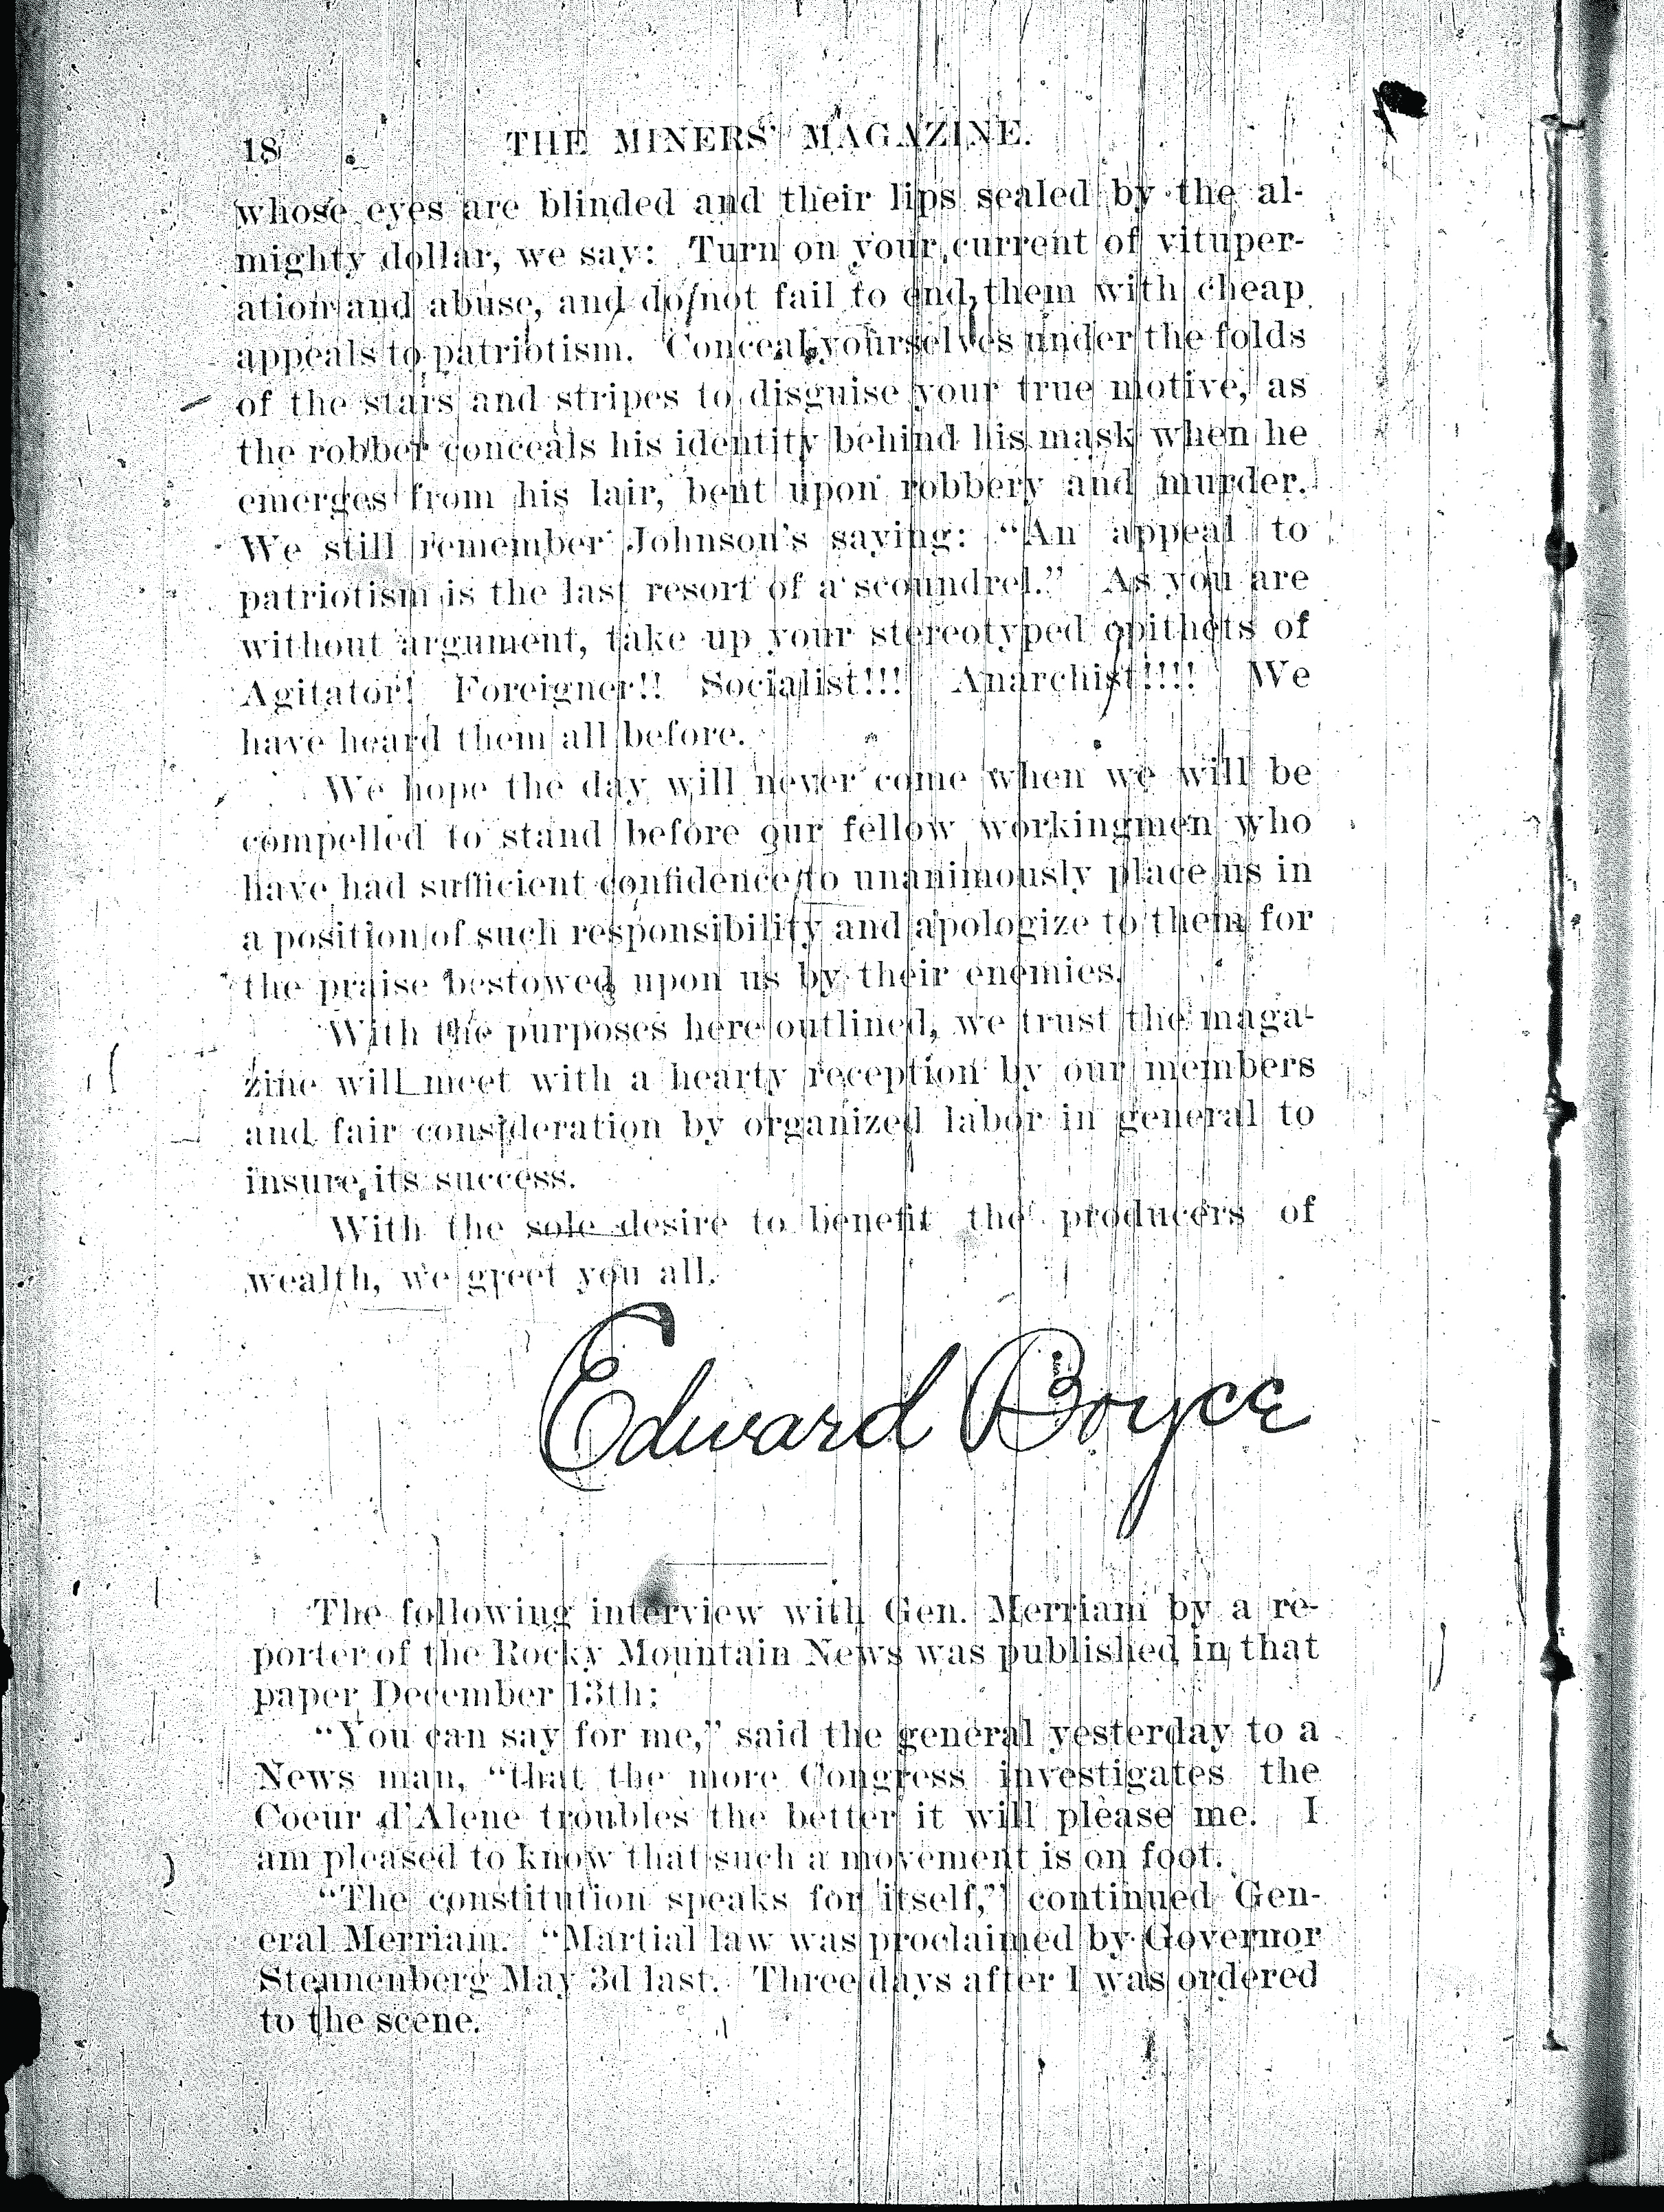 18 THE MINERS' MAGAZINE.
whose eyes are blinded and their lips sealed by the al-
mighty dollar, we say: Turn on your current of vituper-
ation and abuse, and do not fail to end them with cheap
appeals to patriotism. Conceal yourselves under the folds
of the stars and stripes to disguise your true motive, as
the robber conceals his identity behind his mask when he
emerges from his lair, bent upon robbery and murder.
We still remember Johnson's saying: "An appeal to
patriotism is the last resort of a scoundrel." As you are
without argument, take up your stereotyped epithets of
Agitator! Foreigner!! Socialist!!! Anarchist!!!! We
have heard them all before.
We hope the day will never come when we will be
compelled to stand before our fellow workingmen who
have had sufficient confidence to unanimously place us in
a position of such responsibility and apologize to them for
the praise bestowed upon us by their enemies.
With the purposes here outlined, we trust the maga-
zine will meet with a hearty reception by our members
and fair consideration by organized labor in general to
insure its success.
With the sole desire to benefit the producers of
wealth, we greet you all.
Edward Boyce
The following interview with Gen. Merriam by a re-
porter of the Rocky Mountain News was published in that
paper December 13th:
"You can say for me," said the general yesterday to a
News man, "that the more Congress investigates the
Coeur d'Alene troubles the better it will please me. I
am pleased to know that such a movement is on foot.
"The constitution speaks for itself," continued Gen-
eral Merriam. "Martial law was proclaimed by Governor
Steunenberg May 3d last. Three days after I was ordered
to the scene.